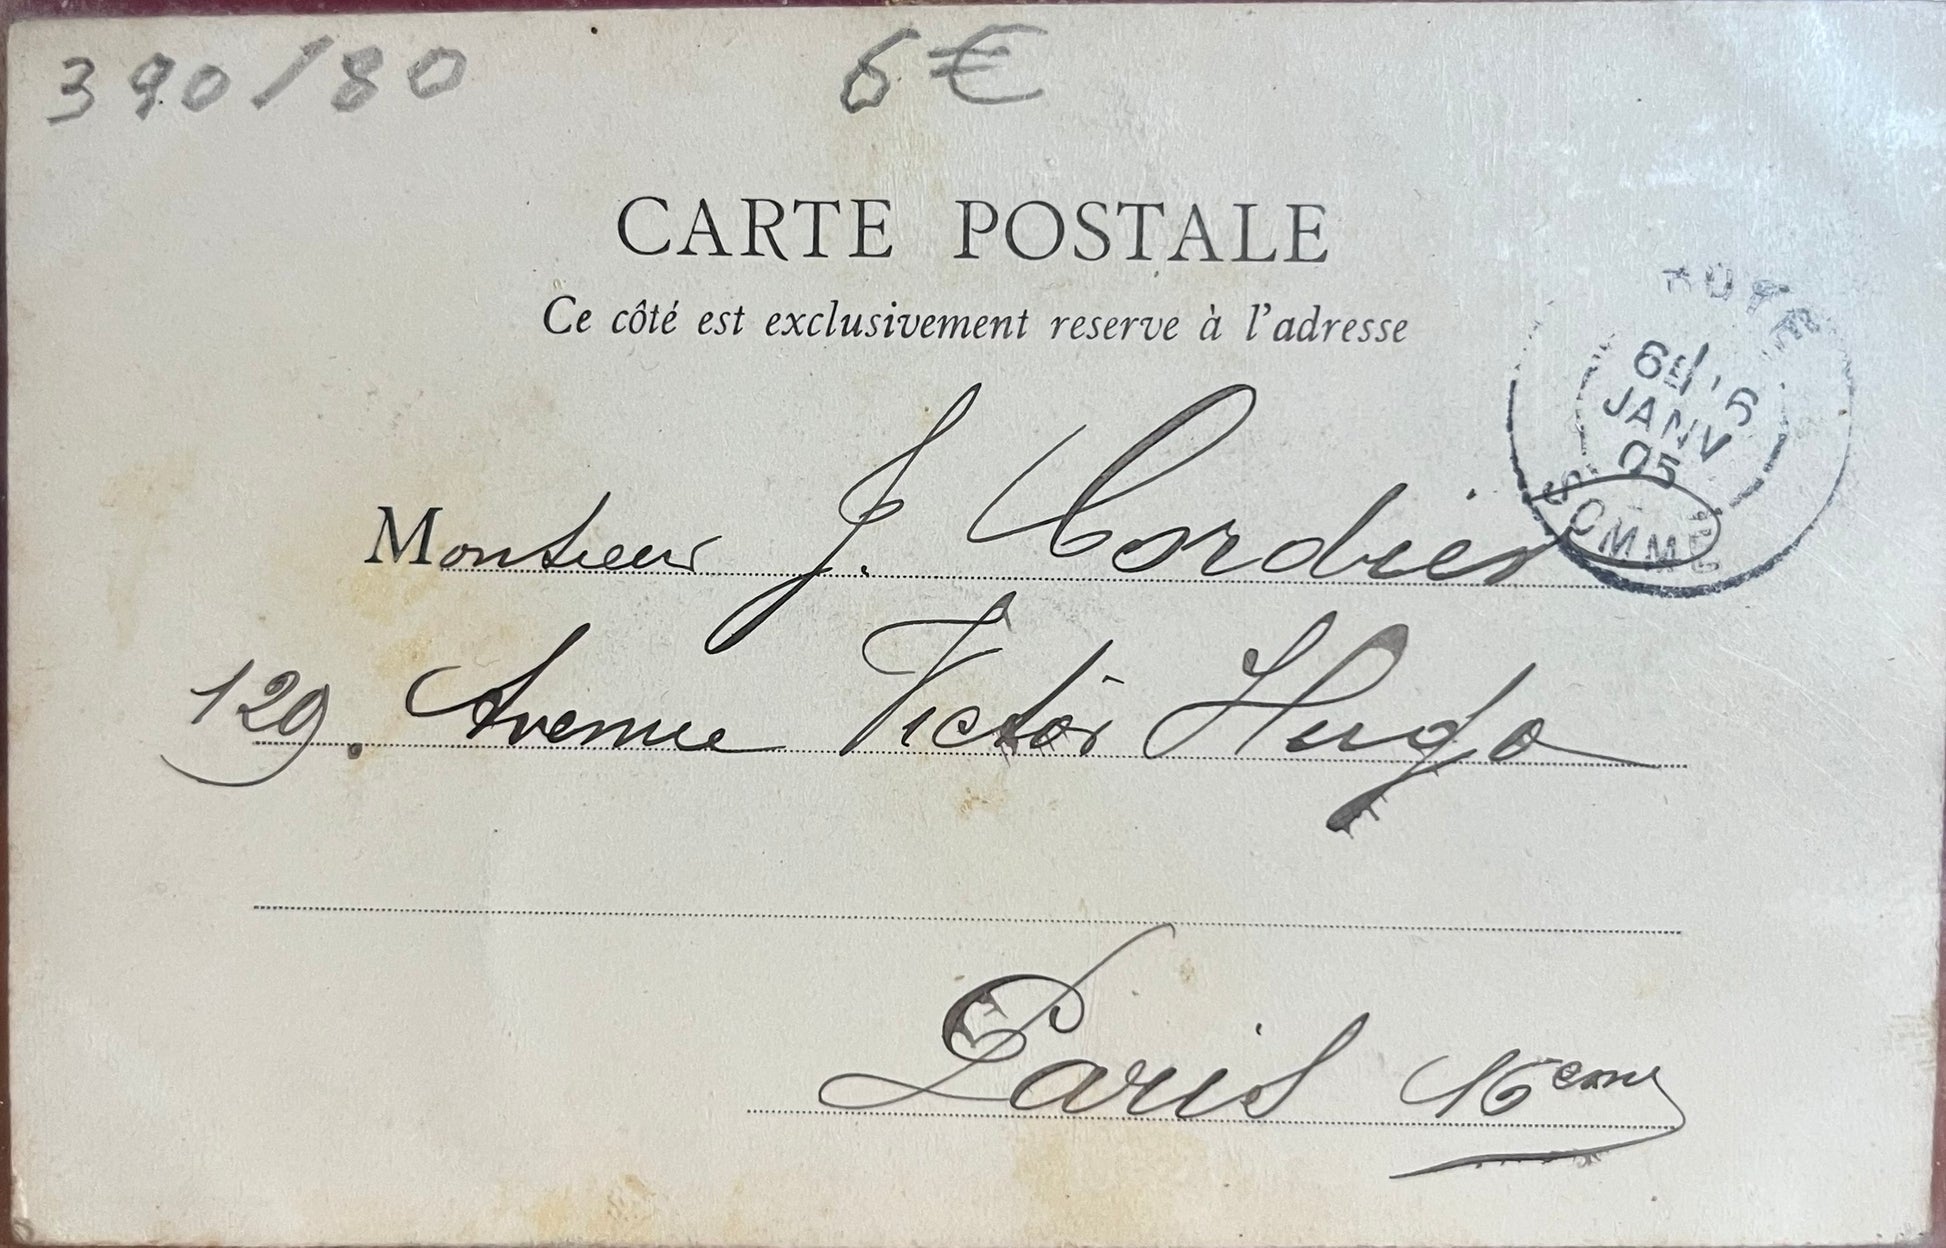 390/80 6€
CARTE POSTALE
Ce côté est exclusivement reserve à l'adresse
ROYE
6E 6
JANV
05
SOMME
Monsieur J. Cordier
129. Avenue Victor Hugo
Paris 16eme